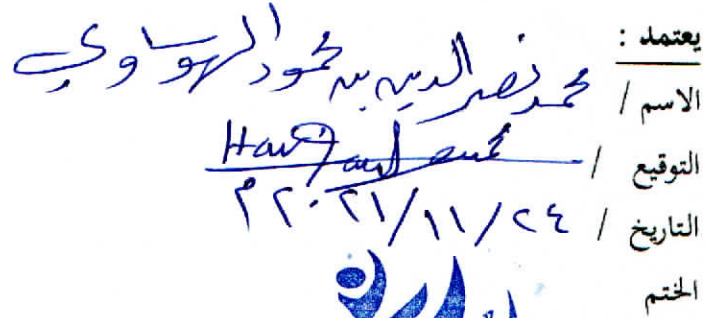 يعتمد :
الاسم / محمد نصر الدين بن محمود الهوساوي
التوقيع / محمد
التاريخ / ٢٠٢١/١١/٢٤م
الختم